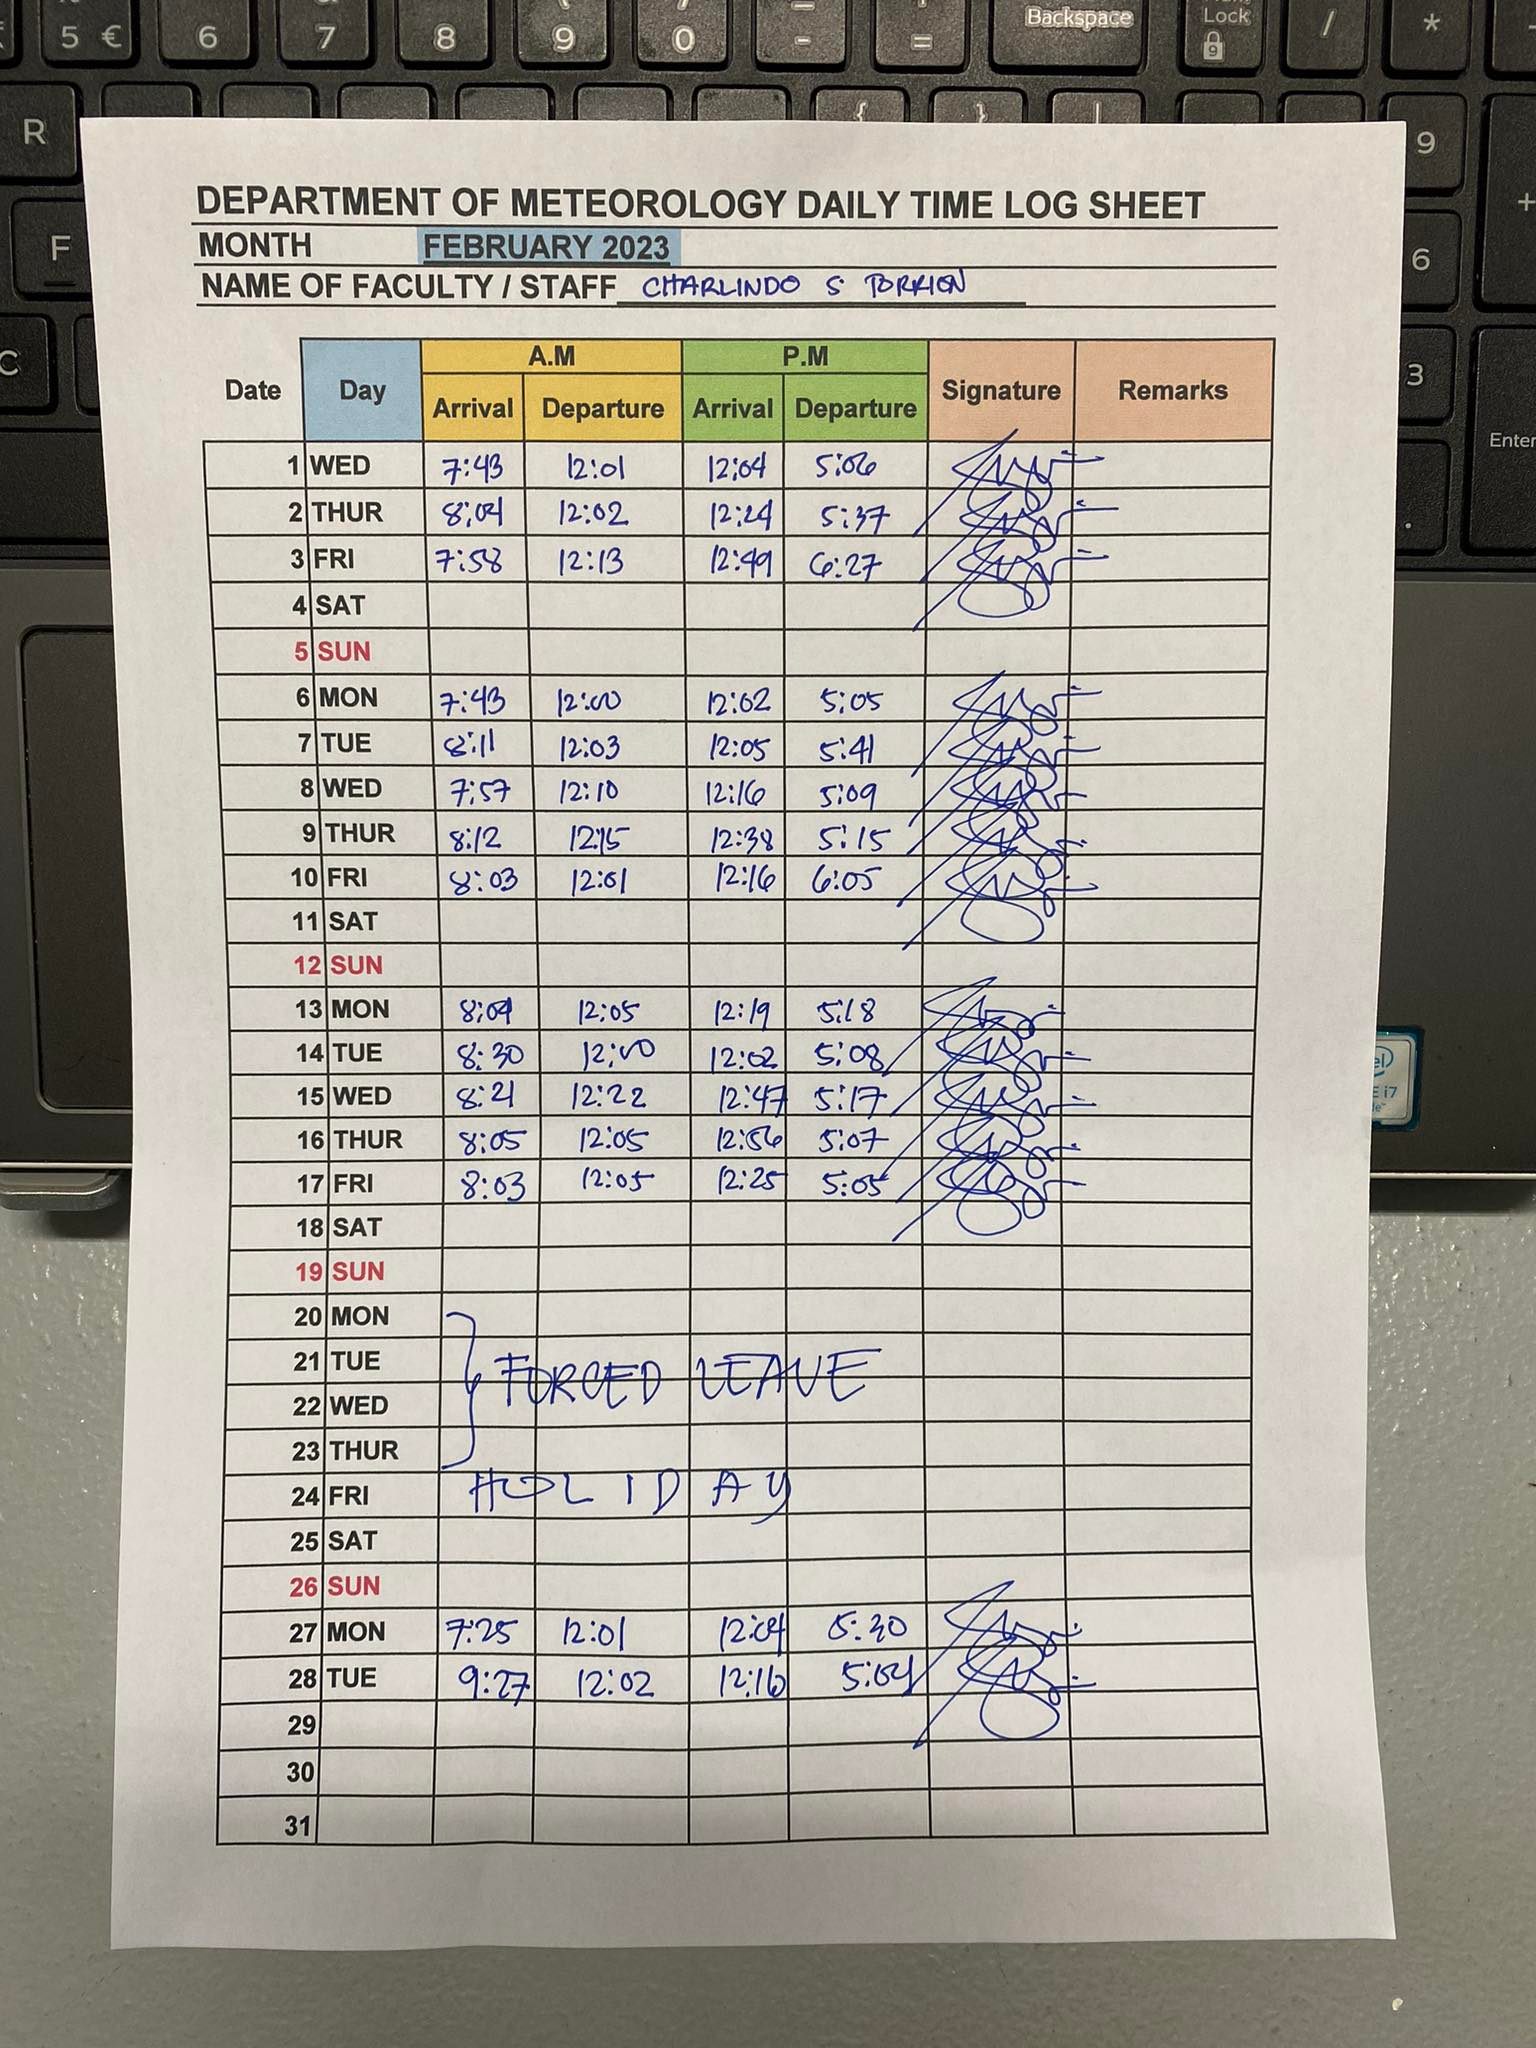 5 €
6
7
8
9
0
-
=
Backspace
Lock
9
/
*
R
{
}
|
9
+
F
6
C
3
Enter
.
DEPARTMENT OF METEOROLOGY DAILY TIME LOG SHEET
MONTH FEBRUARY 2023
NAME OF FACULTY / STAFF CHARLINDO S TORRION
A.M P.M
Date Day Arrival Departure Arrival Departure Signature Remarks
1 WED 7:43 12:01 12:04 5:06
2 THUR 8:04 12:02 12:24 5:37
3 FRI 7:58 12:13 12:49 6:27
4 SAT
5 SUN
6 MON 7:43 12:00 12:02 5:05
7 TUE 8:11 12:03 12:05 5:41
8 WED 7:57 12:10 12:16 5:09
9 THUR 8:12 12:15 12:38 5:15
10 FRI 8:03 12:01 12:16 6:05
11 SAT
12 SUN
13 MON 8:09 12:05 12:19 5:18
14 TUE 8:30 12:00 12:02 5:08
15 WED 8:21 12:22 12:47 5:17
16 THUR 8:05 12:05 12:56 5:07
17 FRI 8:03 12:05 12:25 5:05
18 SAT
19 SUN
20 MON
21 TUE FORCED LEAVE
22 WED
23 THUR
24 FRI HOLIDAY
25 SAT
26 SUN
27 MON 7:25 12:01 12:04 5:30
28 TUE 9:27 12:02 12:16 5:04
29
30
31
i7